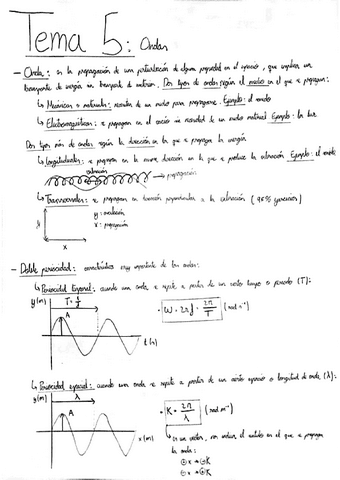 Tema 5: Ondas
- Onda: es la propagación de una perturbación de alguna propiedad en el espacio, que implica un
transporte de energía sin transporte de materia. Dos tipos de ondas según el medio en el que se propaguen:
↳ Mecánicas o materiales: necesitan de un medio para propagarse. Ejemplo: el sonido
↳ Electromagnéticas: se propagan en el vacío sin necesidad de un medio material. Ejemplo: la luz.
Dos tipos más de ondas según la dirección en la que se propague la energía
↳ Longitudinales: se propagan en la misma dirección en la que se produce la vibración. Ejemplo: el sonido
vibración
→ propagación
↳ Transversales: se propagan en dirección perpendicular a la vibración (98% ejercicios)
y
y:
x: propagación
x
- Doble periodicidad: característica muy importante de las ondas:
↳ Periodicidad temporal: cuando una onda se repite a partir de un cierto tiempo o periodo (T):
y(m) T = 1/f
A
• W = 2πf = 2π/T (rad s⁻¹)
t(s)
↳ Periodicidad espacial: cuando una onda se repite a partir de un cierto espacio o longitud de onda (λ):
y(m) λ
A
• K = 2π/λ (rad m⁻¹)
x(m)
↳ Es un vector, nos indica el sentido en el que se propaga
la onda:
⊕x → ⊖K
⊖x → ⊕K